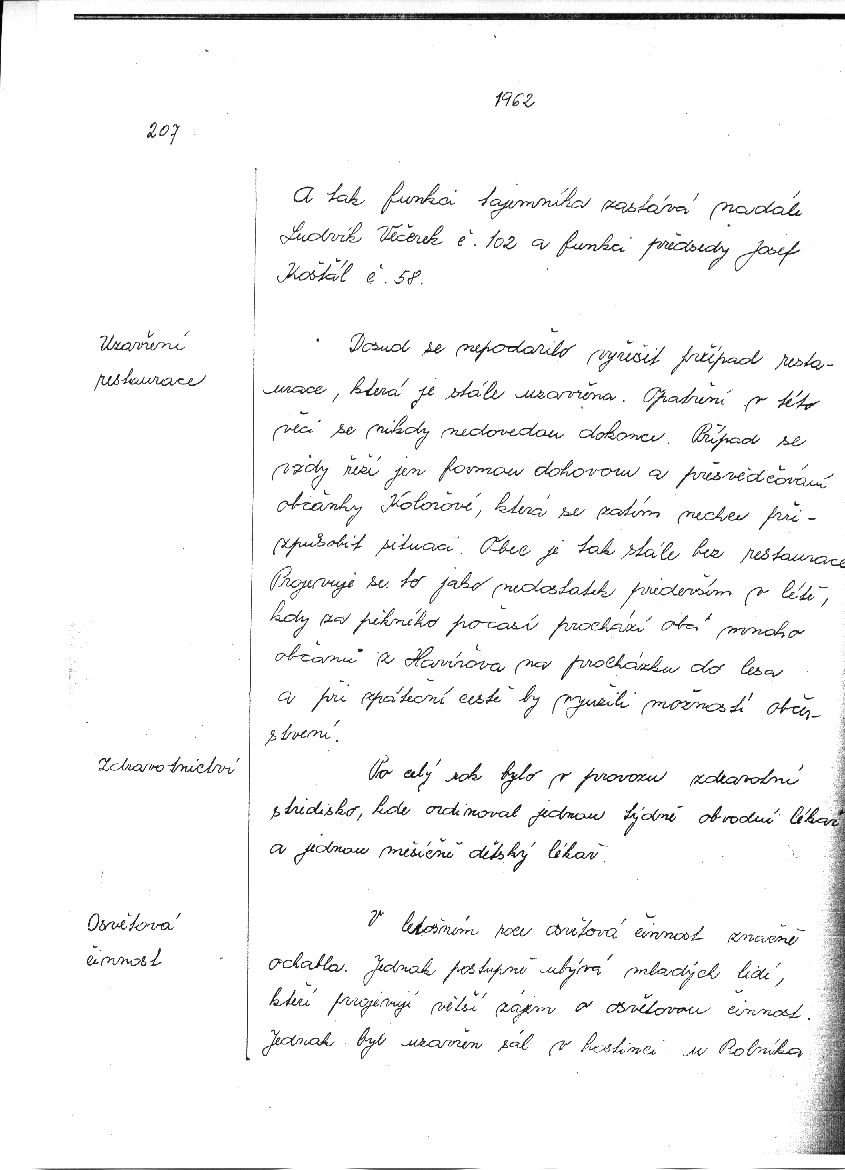 1962
207
A tak funkci tajemníka zastává nadále
Ludvík Věčerek č. 102 a funkci předsedy Josef
Koštál č. 58.
Uzavření
restaurace
Dosud se nepodařilo vyřešit případ resta-
urace, která je stále uzavřena. Opatření v této
věci se nikdy nedovedou dokonce. Případ se
vždy řeší jen formou dohovoru a přesvědčování
občanky Kolorové, která se zatím nechce při-
způsobit situaci. Obec je tak stále bez restaurace
Projevuje se to jako nedostatek především v létě,
kdy za pěkného počasí prochází obcí mnoho
občanů z Havířova na procházku do lesa
a při zpáteční cestě by využili možnosti občer-
stvení.
Zdravotnictví
Po celý rok bylo v provozu zdravotní
středisko, kde ordinoval jednou týdně obvodní lékař
a jednou měsíčně dětský lékař.
Osvětová
činnost
V letošním roce osvětová činnost značně
ochabla. Jednak postupně ubývá mladých lidí,
kteří projevují větší zájem o osvětovou činnost.
Jednak byl uzavřen sál v hostinci u Rolníka